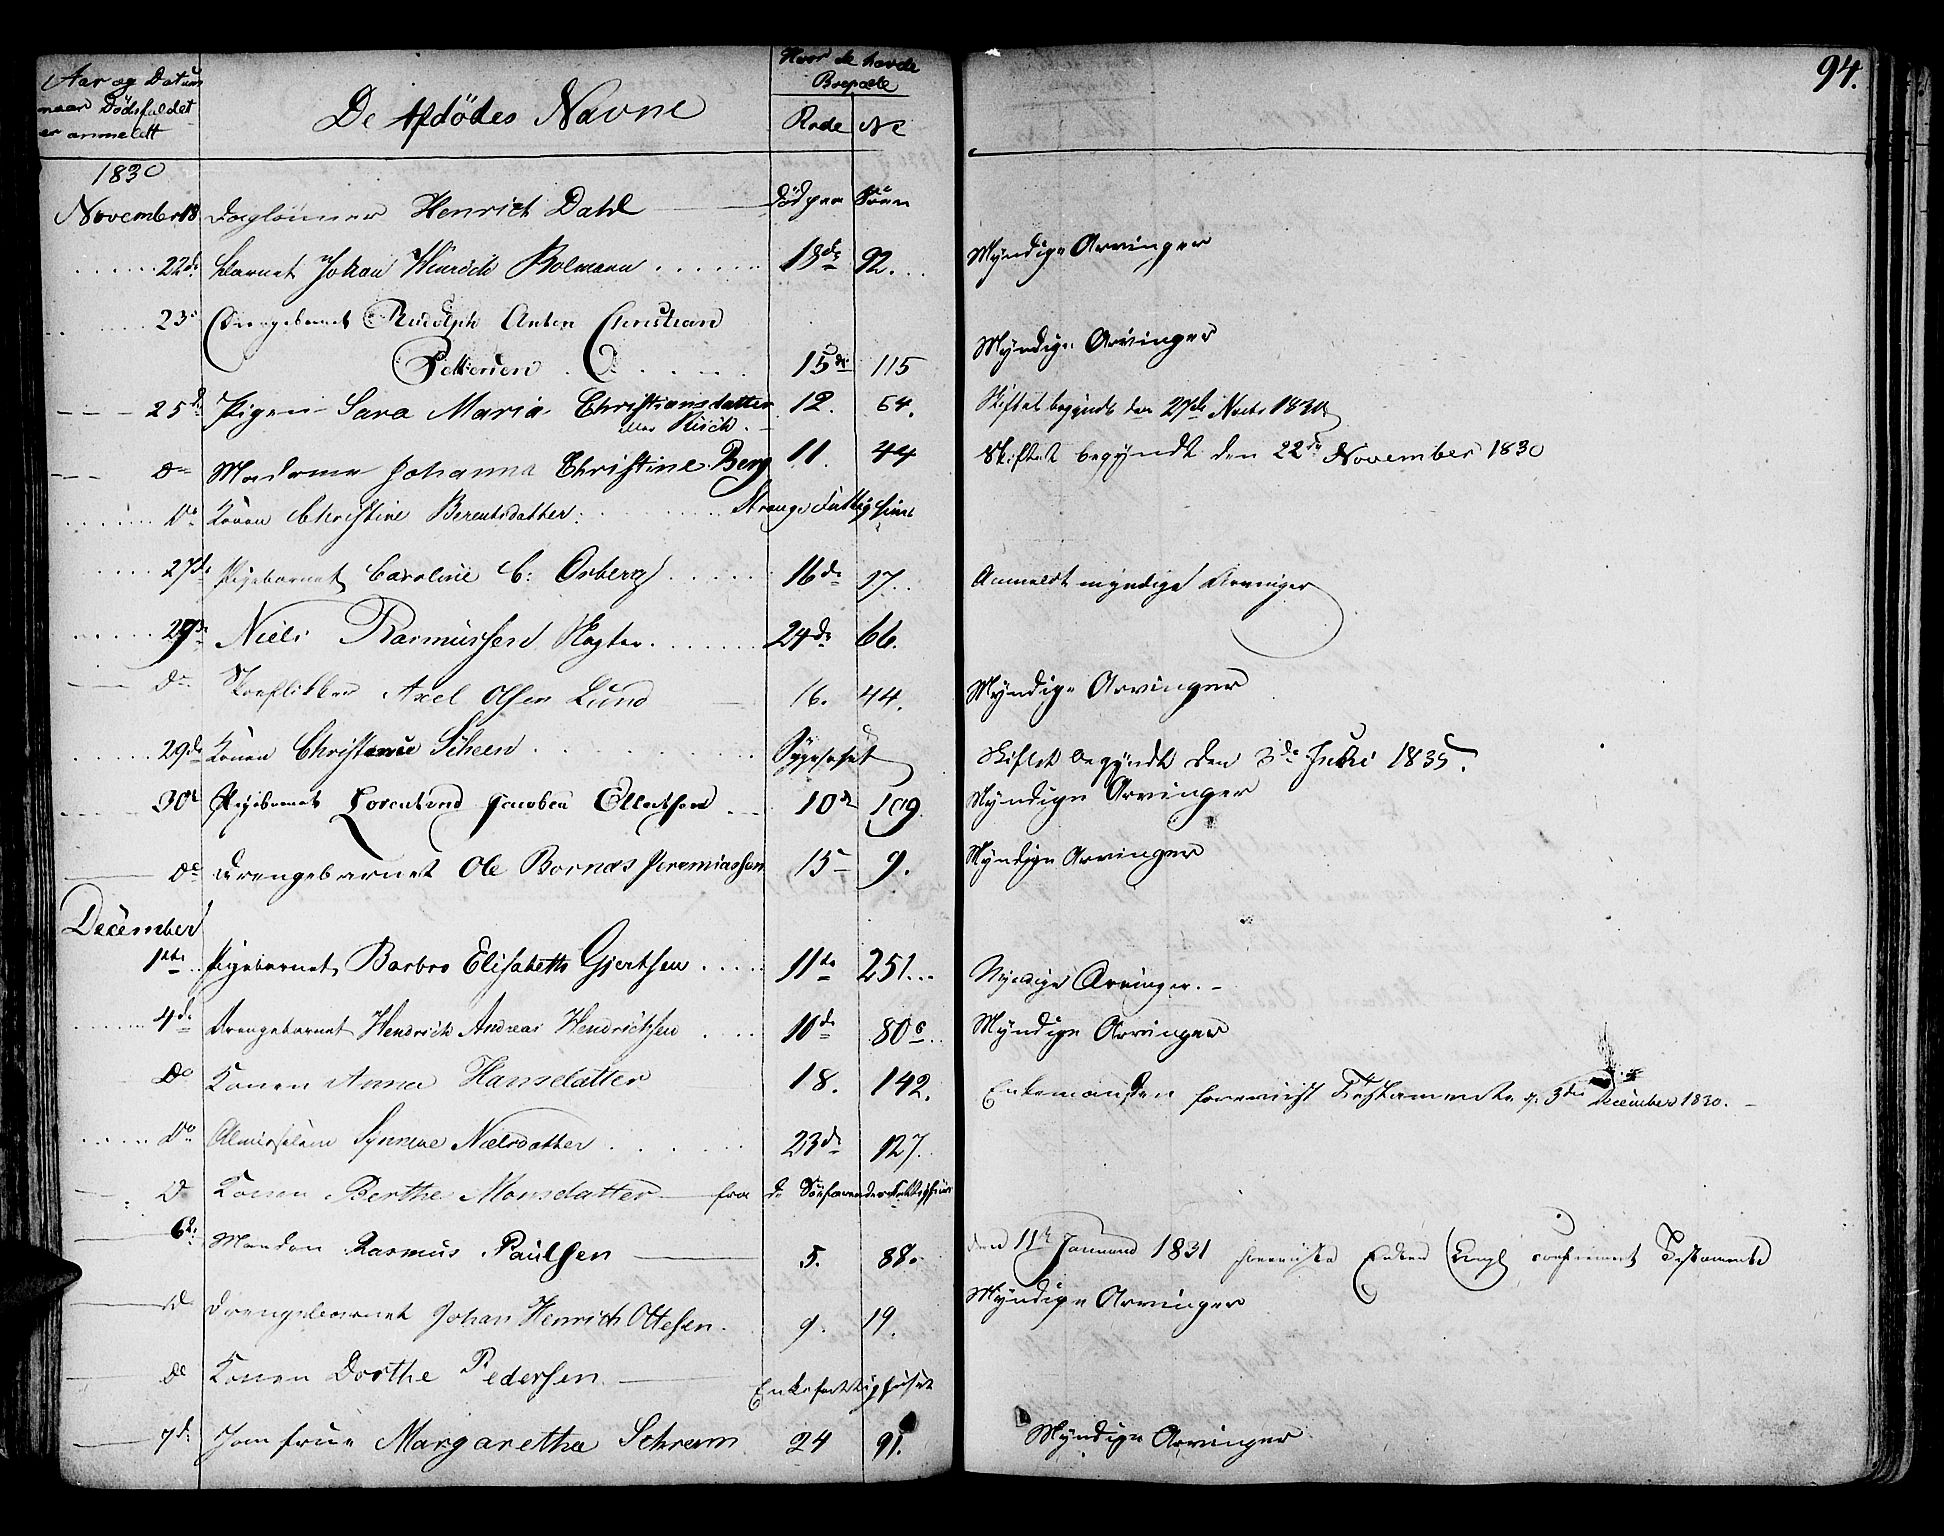 Aar og Datum
naar Dødsfaldet
er anmeldt
De Afdødes Navne
Hvor de havde
Bopæle
Rode No
94.
1830
November 18 Dagleiner Henrich Dahl Död paa
22de Barnet Johan Hinrich Bolmann 18de 92. Myndige Arvinger
23 Drengebarnet Rudolph Anton Christian
Pettersen 15de 115 Myndige Arvinger
25de Pigen Sara Maria Christiansdatter 12. 64. Skiftet begyndt den 27de Novbr 1830
eller Risch
Do Madame Johanna Christine Berg 11. 44 Skiftet begyndt den 22de November 1830
Do Konen Christine Berentsdatter Strangs Fattighuus
27de Pigebarnet Caroline C: Osberg 16de 17. Anmeldt myndige Arvinger
29de Niels Rasmussen Slagter 24de 66.
Do Skoeflikker Axel Olsen Lund 16. 44. Myndige Arvinger
29de Konen Christense Scheen Sygehuset Skiftet begyndt den 3de Juni 1835.
30te Pigebarnet Jacobea Ellertsen 10de 109. Myndige Arvinger
Do Drengebarnet Ole Bornæs Jeremiassen 15 9. Myndige Arvinger
December
1ste Pigebarnet Barbro Elisabeth Gjertsen 11te 251. Myndige Arvinger.
4de Drengebarnet Hendrich Andreas Hendrichsen 10de 80 Myndige Arvinger
Do Konen Anna Hansdatter 18. 142. Enkemanden foreviist Testamente 3die December 1830.
Do Almisselem Synneve Nielsdatter 23de 127.
Do Konen Berthe Monsdatter fra de Söefarendes Fattighuus
6te Manden Rasmus Paulsen 5. 88. den 11te Januari 1831 foreviiste Enken Kongl confirmeret Testamente
Do Drengebarnet Johan Henrich Ottesen. 9. 19. Myndige Arvinger
Do Konen Dorthe Pedersen Enkefattighuset
7de Jomfrue Margaretha Schram 24 91. Myndige Arvinger